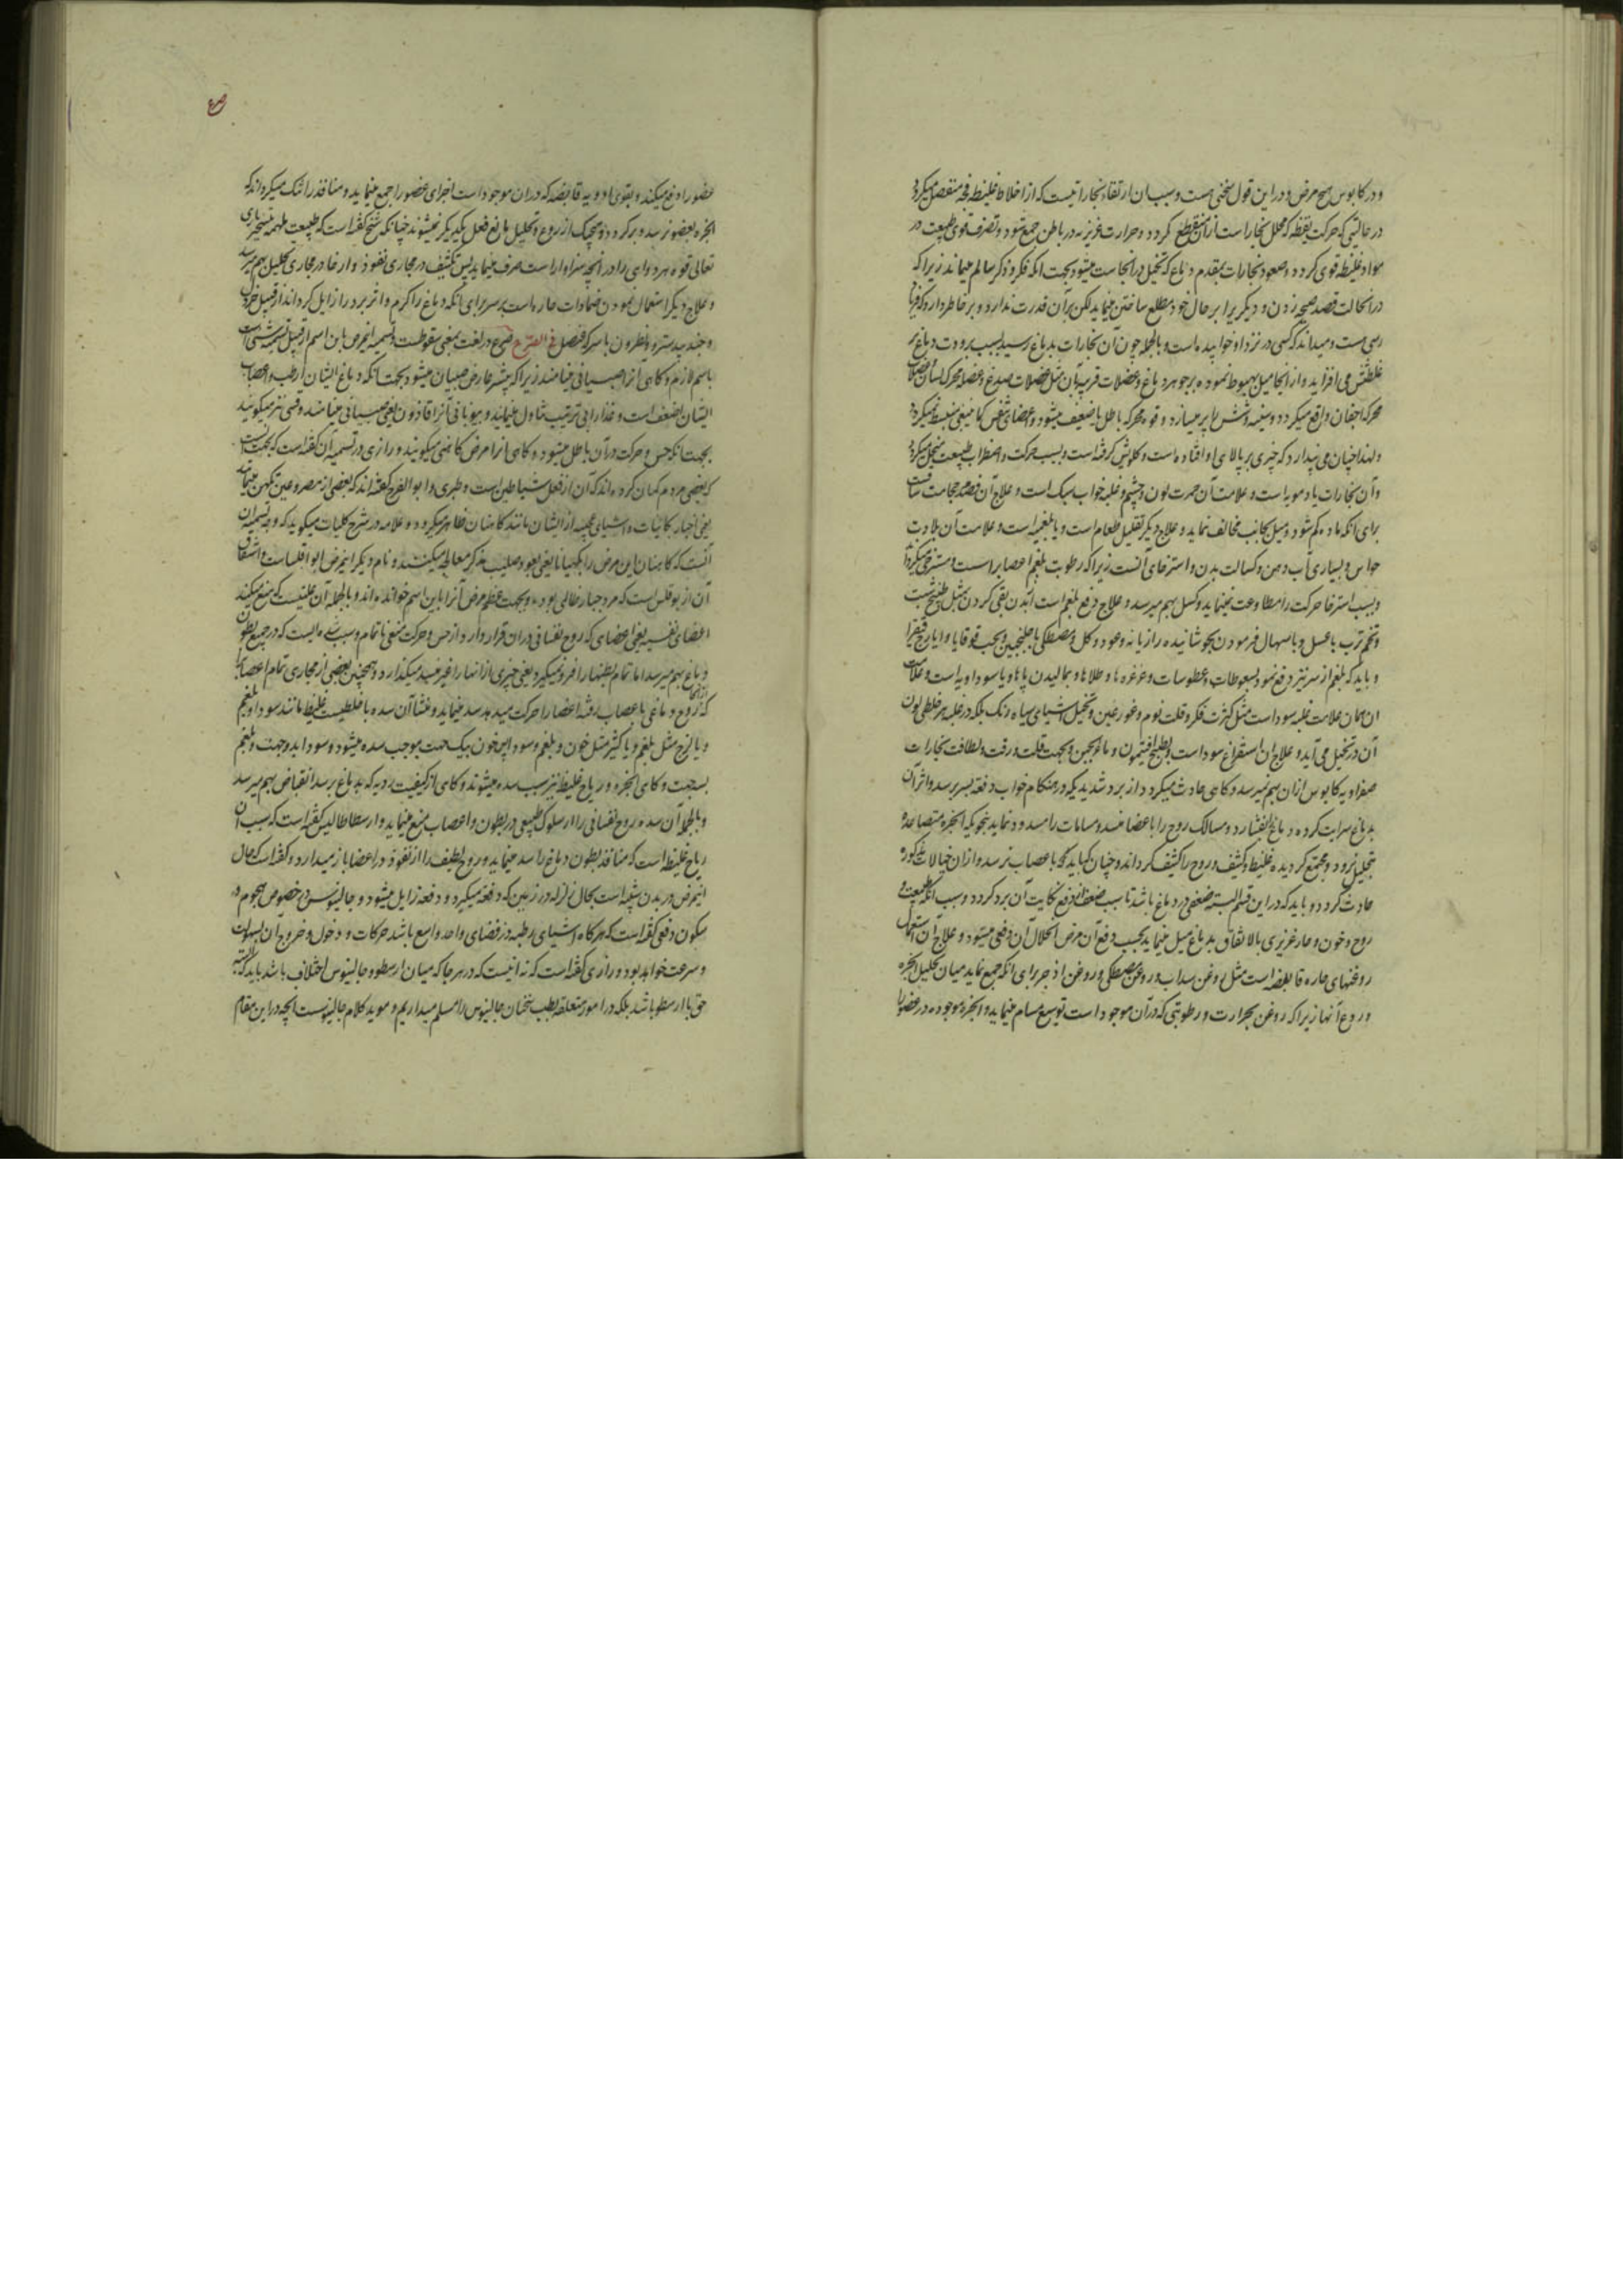 و در کابوس هیچ مرض و در این قول سخنی هست و سبب آن ارتقاء بخاراتیست که از اخلاط غلیظه فجه منفصل میکردد
در حالتی که حرکت یقظه که محلل بخار است از آن منقطع کردد و حرارت غریزیه در باطن جمع شود و تصرف قوی طبیعت در
مواد غلیظه قوی کردد و صعود بخارات بمقدم دماغ که تخیل در انجاست میشود بجهت انکه فکر و ذکر سالم میماند زیرا که
در انحالت قصد صیحه زدن و دیکریرا بر حال خود مطلع ساختن مینماید لکن بر آن قدرت ندارد و بر خاطر دارد که
و میداند که کسی در نزد او خوابیده است و بالجمله چون آن بخارات بدماغ رسید بسبب برودت دماغ بر
غلظتش می افزاید و از انجا میل بهبوط نموده بر جوهر دماغ و عضلات قریبه بآن مثل عضلات صدغ و عضله محرکه لسان و عضلات
محرکه اجفان واقع میکردد و سینه و شش را پر میسازد و قوه محرکه باطل یا ضعیف میشود و اعضای تنفس کما ینبغی منبسط نمیکردد
و لهذا چنان می پندارد که چیزی بر بالای او افتاده است و کلویش کرفته است و بسبب حرکت و اضطراب طبیعت متحلل میکردد
و آن بخارات یا دمویه است و علامت آن حمرت لون و چشم و غلبه خواب سبک است و علاج آن فصد و حجامت ساقست
برای انکه ماده کم شود و میل بجانب مخالف نماید و علاج دیکر تقلیل طعام است و یا بلغمیه است و علامت آن بلادت
حواس و بسیاری آب دهن و کسالت بدن و استرخای آنست زیرا که رطوبت بلغم اعصاب را سست و مسترخی میکرداند
و بسبب استرخا حرکت را مطاوعت نمینماید و کسل بهم میرسد و علاج دفع بلغم است ابتدا بقی کردن بمثل طبیخ شبت
و تخم ترب با عسل و باسهال فرمودن بجوشانیده رازیانه و عود و کل و مصطکی با جلنجبین و بحب قوقایا و ایارج فیقرا
و باید که بلغم از سر نیز دفع نمود بسعوطات و عطوسات و غرغره ها و طلاها و بمالیدن پاها و یا سوداویه است و علامت
ان همان علامت غلبه سوداست مثل کثرت فکر و قلت نوم و غور عین و تخیل اشیای سیاه رنک بلکه در غلبه هر خلطی لون
آن در تخیل می آید و علاج ان استفراغ سوداست بطبیخ افتیمون و ماء الجبن و بجهت قلت و رقت و لطافت بخارات
صفراویه کابوس از ان بهم نمیرسد و کاهی حادث میکردد از برد شدیدی که در هنکام خواب دفعة بسر برسد و اثر آن
بدماغ سرایت کرده دماغ را بفشارد و مسالک روح را باعضا منسد و مسامات را مسدود نماید بنحوی که ابخره متصاعده
بتحلیل نرود و مجتمع کردیده غلیظ و کثیف و روح را کثیف کرداند و چنان که باید باعصاب نرسد و از ان خیالات مذکوره
حادث کردد و باید که در این قسم البته ضعفی در دماغ باشد تا سبب ضغط از دفع نکایت آن برد کردد و بسبب انکه طبیعت و
روح و خون و حار غریزی بالاتفاق بدماغ میل مینماید بجهت دفع آن مرض انحلال آن دفعی میشود و علاج آن استعمال
روغنهای حاره قابضه است مثل روغن سداب و روغن مصطکی و روغن اذخر برای انکه جمع نماید میان تحلیل ابخره
و ردع آنها زیرا که روغن بحرارت و رطوبتی که در آن موجود است توسیع مسام مینماید و ابخره موجوده در عضو را
عضو را دفع میکند و بقوی ادویه قابضه که در ان موجود است اجزای عضو را جمع مینماید و منافذ را تنک میکرداند که
ابخره بعضو نرسد و برکردد و هیچیک از ردع و تحلیل مانع فعل یکدیکر نمیشوند چنانکه شیخ کفته است که طبیعت ملهمه بتسخیر باری
تعالی قوه هر دوای را در آنچه سزاوار است صرف مینماید پس تکثیف در مجاری نفوذ و ارخا در مجاری تحلیل بهم میرسد
و علاج دیکر استعمال نمودن ضمادات حاره است بر سر برای انکه دماغ را کرم و اثر برد را زایل کرداند از قبیل خردل
و جندبیدستر و نطرون با سرکه فصل فی الصرع صرع در لغت بمعنی سقوطست و تسمیه این مرض باین اسم از قبیل تسمیه شی است
باسم لازم و کاهی انرا صبیانی مینامند زیرا که بیشتر عارض صبیان میشود بجهت انکه دماغ ایشان ارطب و اعصاب
ایشان اضعف است و غذا را بی ترتیب تناول مینمایند و بیونانی آنرا فاذون یعنی صبیانی مینامند و قس نیز میکویند
بجهت انکه حس و حرکت در آن باطل میشود و کاهی انرا مرض کاهنی میکویند و رازی در تسمیه آن کفته است که بجهت آنست
که بعضی مردم کمان کرده اند که آن از فعل شیاطین است و طبری و ابو الفرج کفته اند که بعضی از مصروعین تکهن مینمایند
یعنی اخبار بکاینات و اشیای عجیبه از ایشان مانند کاهنان ظاهر میکردد و علامه در شرح کلیات میکوید که وجه تسمیه ان
آنست که کاهنان این مرض را بکهیانا یعنی بعود صلیب معالجه میکنند و نام دیکر این مرض ابو اقلسا است و اشتقاق
آن از بوقلس است که مرد جبار ظالمی بوده و بجهت عظم مرض آنرا باین اسم خوانده اند و بالجمله آن علتیست که منع میکند
اعضای نفسیه یعنی اعضای که روح نفسانی در ان قرار دارد از حس و حرکت منعی ناتمام و سبب سده ایست که در جمیع بطون
دماغ بهم میرسد اما تمام بطنها را فرو نمیکیرد یعنی چیزی از انها را غیر منسد میکذارد و همچنین بعضی از مجاری تمام اعصاب
که روح دماغی از آنها باعصاب رفته اعضا را حرکت میدهد سد مینماید و منشأ آن سده یا خلطیست غلیظ مانند سودا و بلغم
و یا لزج مثل بلغم و یا کثیر مثل خون و بلغم و سودا پس خون بیک جهت موجب سده میشود و سودا بدو جهت و بلغم
بسه جهت و کاهی ابخره و ریاح غلیظه نیز سبب سده میشوند و کاهی از کیفیت ردیه که بدماغ برسد انقباض بهم میرسد
و بالجمله آن سده روح نفسانی را از سلوک طبیعی در بطون و اعصاب منع مینماید و ارسطاطالیس کفته است که سبب آن
ریاح غلیظ است که منافذ بطون دماغ را سد مینماید و روح لطیف را از نفوذ در اعضا باز میدارد و کفته است که حال
این مرض در بدن شبیه است بحال زلزله در زمین که دفعة میکیرد و دفعة زایل میشود و جالینوس در خصوص هجوم و
سکون دفعی کفته است که هرکاه اشیای رطبه در فضای واحد واسع باشد حرکات و دخول و خروج آن بسهولت
و سرعت خواهد بود و رازی کفته است که نه انیست که در هر جا که میان ارسطو و جالینوس اختلاف باشد باید که البته
حق با ارسطو باشد بلکه در امور متعلقه بطب سخنان جالینوس را مسلم میداریم و موید کلام جالینوس است انچه در این مقام